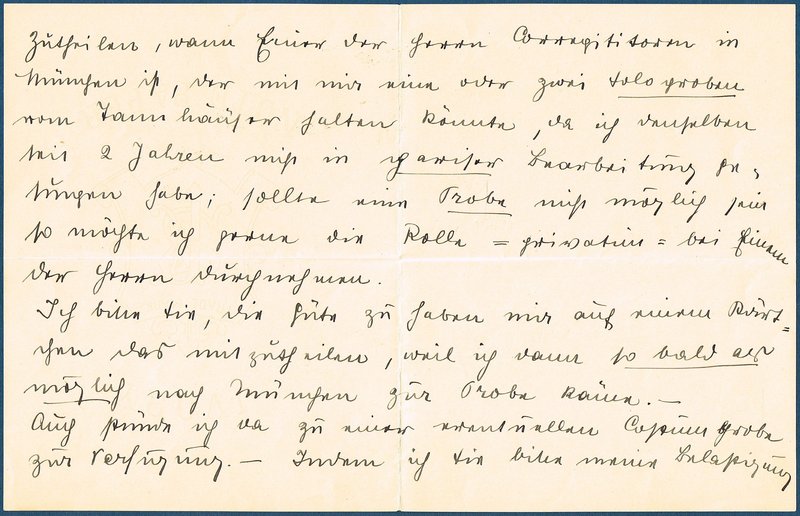 zutheilen, wann Einer der Herrn Correpititoren in
München ist, der mit mir eine oder zwei Soloproben
vom Tannhäuser halten könnte, da ich denselben
seit 2 Jahren nicht in pariser Bearbeitung ge-
sungen habe; sollte eine Probe nicht möglich sein
so möchte ich gerne die Rolle = privatim = bei Einem
der Herrn durchnehmen.
Ich bitte Sie, die Güte zu haben mir auf einem Kärt=
chen das mitzutheilen, weil ich dann so bald als
möglich nach München zur Probe käme. —
Auch stünde ich da zu einer eventuellen Costum probe
zur Verfügung. — Indem ich Sie bitte meine Belästigung